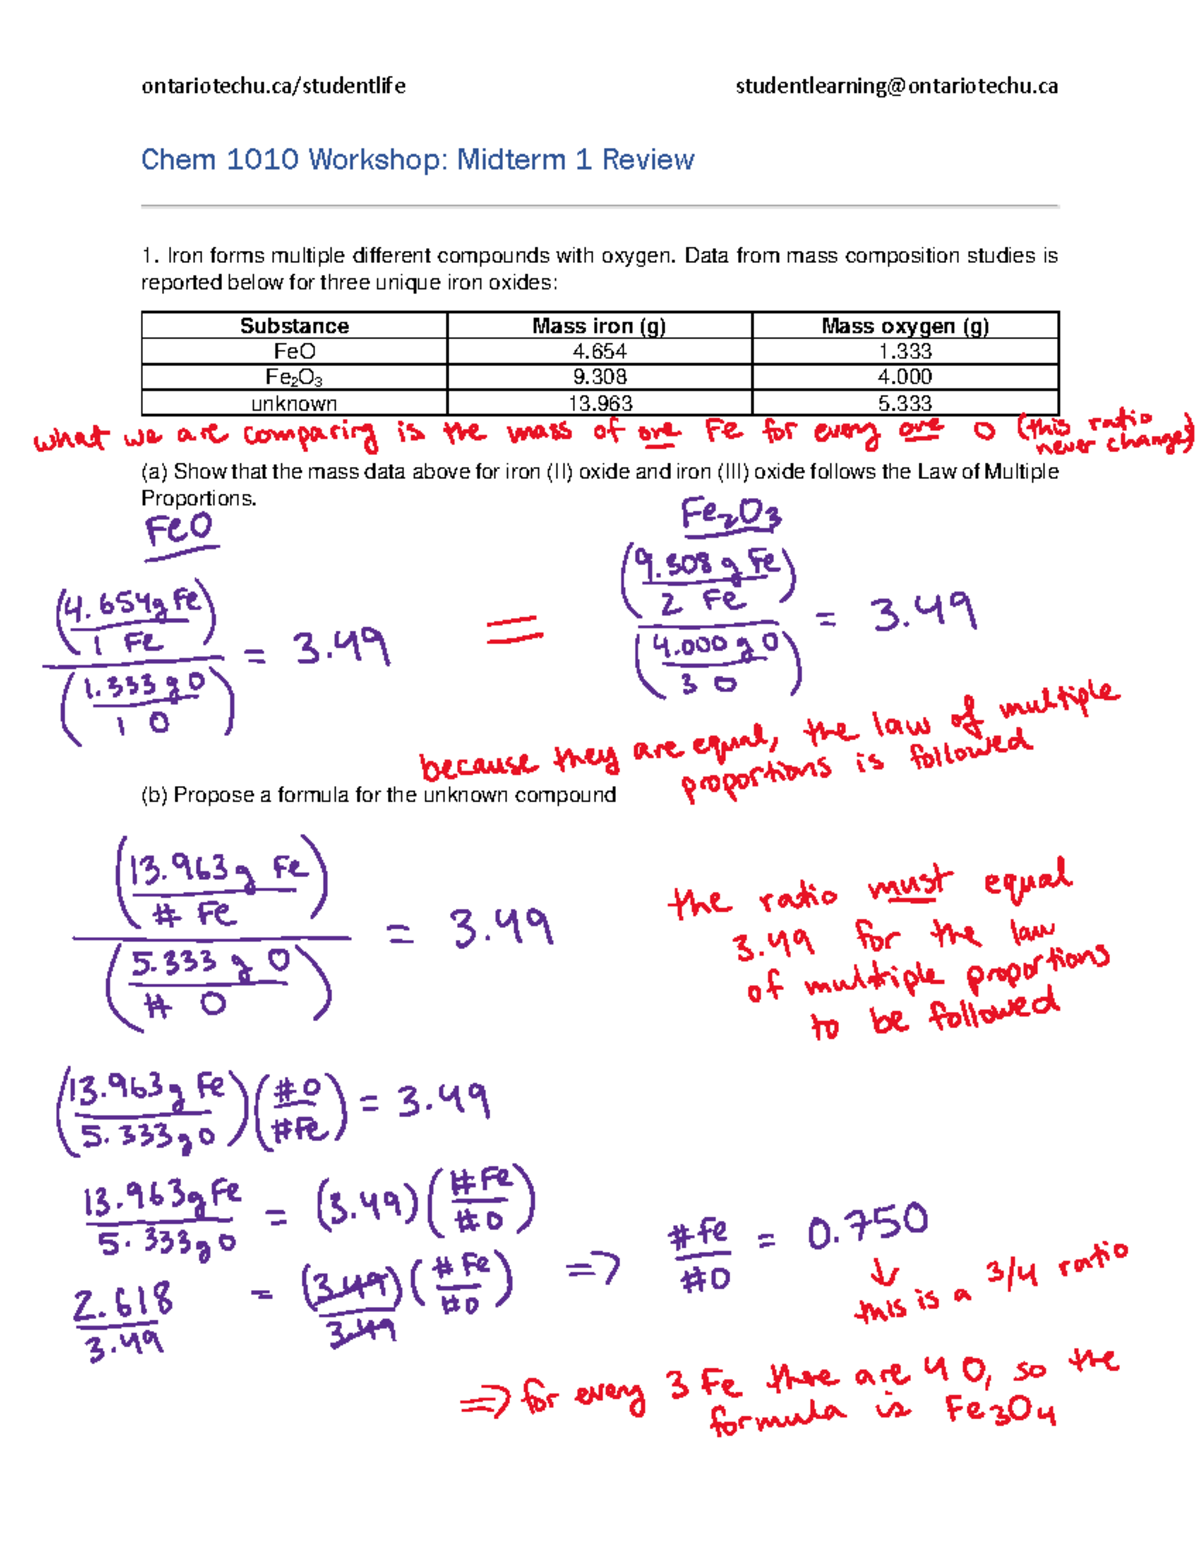 ontariotechu.ca/studentlife studentlearning@ontariotechu.ca
Chem 1010 Workshop: Midterm 1 Review
1. Iron forms multiple different compounds with oxygen. Data from mass composition studies is
reported below for three unique iron oxides:
Substance Mass iron (g) Mass oxygen (g)
FeO 4.654 1.333
Fe₂O₃ 9.308 4.000
unknown 13.963 5.333
what we are comparing is the mass of one Fe for every one O (this ratio
never changes)
(a) Show that the mass data above for iron (II) oxide and iron (III) oxide follows the Law of Multiple
Proportions.
FeO
(4.654g Fe / 1 Fe) / (1.333 g O / 1 O) = 3.49
=
Fe₂O₃
(9.308 g Fe / 2 Fe) / (4.000 g O / 3 O) = 3.49
because they are equal, the law of multiple
proportions is followed
(b) Propose a formula for the unknown compound
(13.963 g Fe / # Fe) / (5.333 g O / # O) = 3.49
the ratio must equal
3.49 for the law
of multiple proportions
to be followed
(13.963g Fe / 5.333g O) (#O / #Fe) = 3.49
13.963g Fe / 5.333g O = (3.49) (#Fe / #O)
2.618 / 3.49 = (3.49) / 3.49 (#Fe / #O) => #Fe / #O = 0.750
↓
this is a 3/4 ratio
=> for every 3 Fe there are 4 O, so the
formula is Fe₃O₄